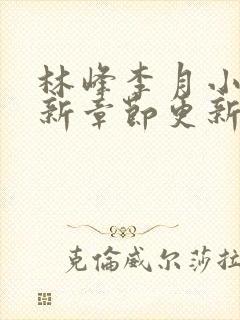 林峰李月小
新章節更新
克倫威尔莎拉